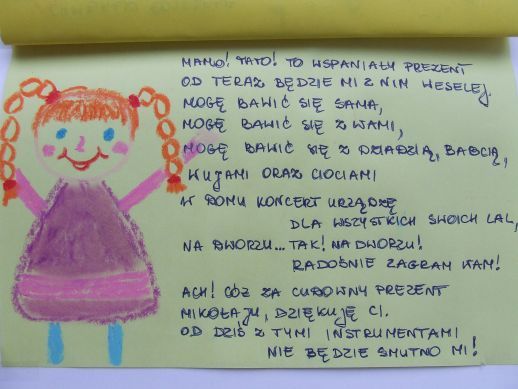 MAMO! TATO! TO WSPANIAŁY PREZENT
OD TERAZ BĘDZIE MI Z NIM WESELEJ.
MOGĘ BAWIĆ SIĘ SAMA,
MOGĘ BAWIĆ SIĘ Z WAMI,
MOGĘ BAWIĆ SIĘ Z DZIADZIĄ, BABCIĄ,
WUJAMI ORAZ CIOCIAMI
W DOMU KONCERT URZĄDZĘ
DLA WSZYSTKICH SWOICH LAL,
NA DWORZU... TAK! NA DWORZU!
RADOŚNIE ZAGRAM WAM!
ACH! CÓŻ ZA CUDOWNY PREZENT
MIKOŁAJU, DZIĘKUJĘ CI.
OD DZIŚ Z TYMI INSTRUMENTAMI
NIE BĘDZIE SMUTNO MI!